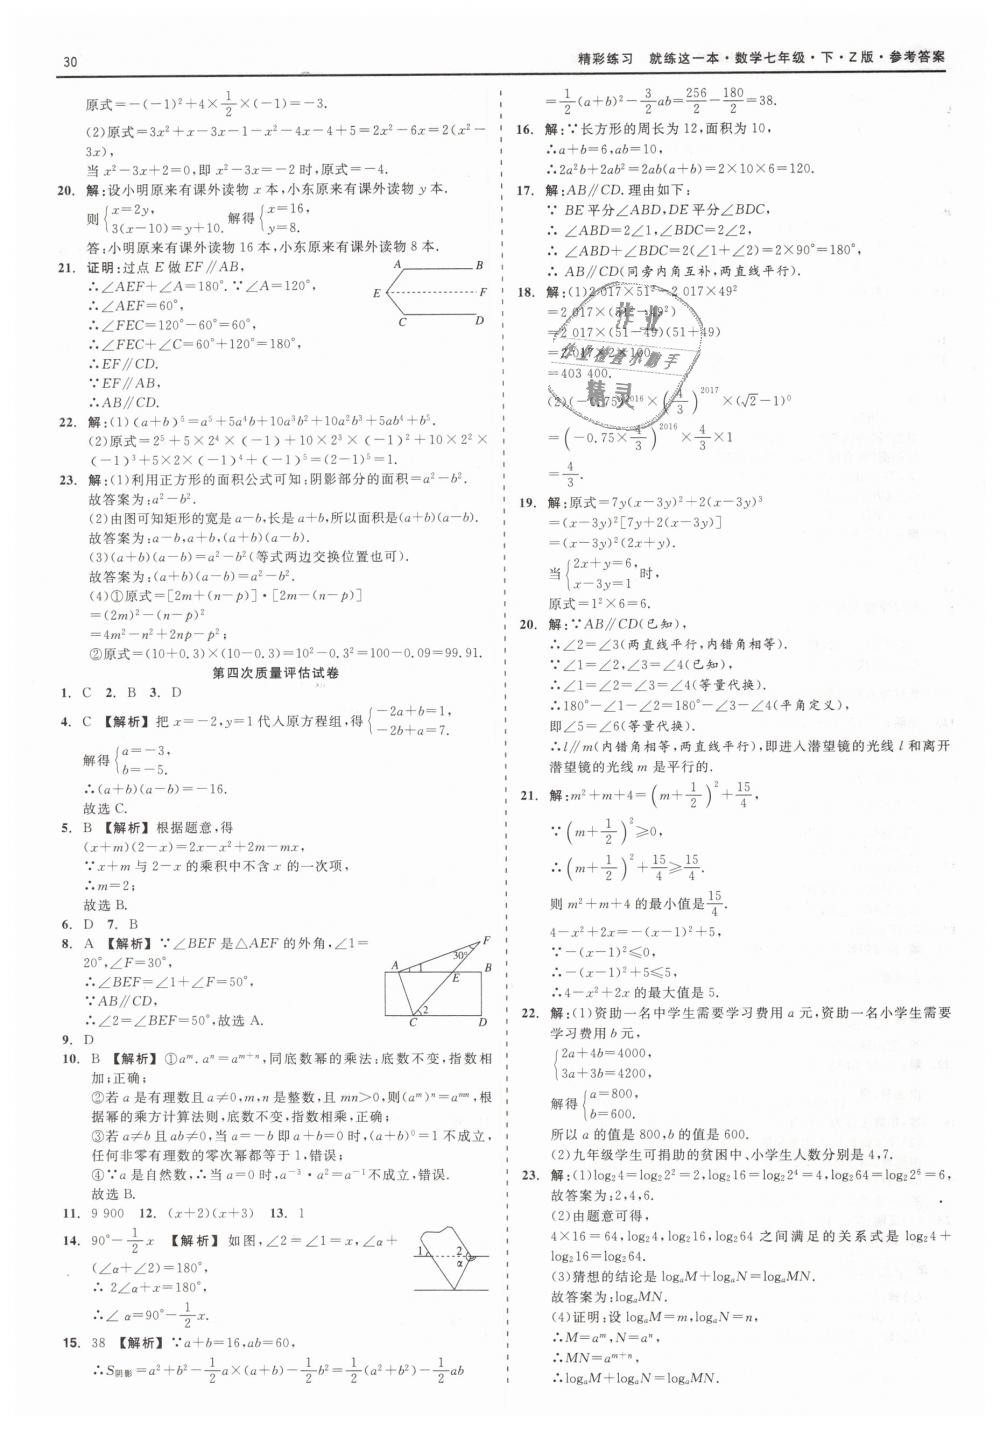 30
精彩练习 就练这一本·数学七年级·下·Z版·参考答案
原式=-(-1)²+4×1/2×(-1)=-3.
(2)原式=3x²+x-3x-1-x²-4x-4+5=2x²-6x=2(x²-
3x),
当 x²-3x+2=0,即 x²-3x=-2 时,原式=-4.
20. 解:设小明原来有课外读物 x 本,小东原来有课外读物 y 本.
则 {x=2y, 3(x-10)=y+10. 解得 {x=16, y=8.
答:小明原来有课外读物 16 本,小东原来有课外读物 8 本.
21. 证明:过点 E 做 EF∥AB,
∴∠AEF+∠A=180°.∵∠A=120°,
∴∠AEF=60°,
∴∠FEC=120°-60°=60°,
∴∠FEC+∠C=60°+120°=180°,
∴EF∥CD.
∵EF∥AB,
∴AB∥CD.
A B
E F
C D
22. 解:(1)(a+b)⁵=a⁵+5a⁴b+10a³b²+10a²b³+5ab⁴+b⁵.
(2)原式=2⁵+5×2⁴×(-1)+10×2³×(-1)²+10×2²×
(-1)³+5×2×(-1)⁴+(-1)⁵=(2-1)⁵=1.
23. 解:(1)利用正方形的面积公式可知:阴影部分的面积=a²-b².
故答案为:a²-b².
(2)由图可知矩形的宽是 a-b,长是 a+b,所以面积是(a+b)(a-b).
故答案为:a-b,a+b,(a+b)(a-b).
(3)(a+b)(a-b)=a²-b²(等式两边交换位置也可).
故答案为:(a+b)(a-b)=a²-b².
(4)①原式=[2m+(n-p)]·[2m-(n-p)]
=(2m)²-(n-p)²
=4m²-n²+2np-p²;
②原式=(10+0.3)×(10-0.3)=10²-0.3²=100-0.09=99.91.
第四次质量评估试卷
1. C 2. B 3. D
4. C 【解析】把 x=-2,y=1 代入原方程组,得 {-2a+b=1, -2b+a=7.
解得 {a=-3, b=-5.
∴(a+b)(a-b)=-16.
故选 C.
5. B 【解析】根据题意,得
(x+m)(2-x)=2x-x²+2m-mx,
∵x+m 与 2-x 的乘积中不含 x 的一次项,
∴m=2;
故选 B.
6. D 7. B
8. A 【解析】∵∠BEF 是△AEF 的外角,∠1=
20°,∠F=30°,
∴∠BEF=∠1+∠F=50°,
∵AB∥CD,
∴∠2=∠BEF=50°,故选 A.
F
30°
A 1 E B
2
C D
9. D
10. B 【解析】①aᵐ.aⁿ=aᵐ⁺ⁿ,同底数幂的乘法:底数不变,指数相
加;正确;
②若 a 是有理数且 a≠0,m,n 是整数,且 mn>0,则(aᵐ)ⁿ=aᵐⁿ,根
据幂的乘方计算法则,底数不变,指数相乘,正确;
③若 a≠b 且 ab≠0,当 a=-b 即 a+b=0 时,(a+b)⁰=1 不成立,
任何非零有理数的零次幂都等于 1,错误;
④∵a 是自然数,∴当 a=0 时,a⁻³·a²=a⁻¹不成立,错误.
故选 B.
11. 9 900 12. (x+2)(x+3) 13. 1
14. 90°-1/2x 【解析】如图,∠2=∠1=x,∠α+
(∠α+∠2)=180°,
∴ 2∠α+x=180°,
∴∠ α=90°-1/2x.
1 2
α
15. 38 【解析】∵a+b=16,ab=60,
∴S阴影=a²+b²-1/2a×(a+b)-1/2b²=1/2(a²+b²)-1/2ab
=1/2(a+b)²-3/2ab=256/2-180/2=38.
16. 解:∵长方形的周长为 12,面积为 10,
∴a+b=6,ab=10,
∴2a²b+2ab²=2ab(a+b)=2×10×6=120.
17. 解:AB∥CD.理由如下:
∵ BE 平分∠ABD,DE 平分∠BDC,
∴ ∠ABD=2∠1,∠BDC=2∠2,
∴ ∠ABD+∠BDC=2(∠1+∠2)=2×90°=180°,
∴ AB∥CD(同旁内角互补,两直线平行).
18. 解:(1)2 017×51²-2 017×49²
=2 017×(51²-49²)
=2 017×(51-49)(51+49)
=2 017×2×100
=403 400.
(2)(-0.75)²⁰¹⁶×(4/3)²⁰¹⁷×(√2-1)⁰
=(-0.75×4/3)²⁰¹⁶×4/3×1
=4/3.
作业
作业检查小帮手
精灵
19. 解:原式=7y(x-3y)²+2(x-3y)³
=(x-3y)²[7y+2(x-3y)]
=(x-3y)²(2x+y).
当 {2x+y=6, x-3y=1 时,
原式=1²×6=6.
20. 解:∵AB∥CD(已知),
∴∠2=∠3(两直线平行,内错角相等).
∵∠1=∠2,∠3=∠4(已知),
∴∠1=∠2=∠3=∠4(等量代换).
∴180°-∠1-∠2=180°-∠3-∠4(平角定义),
即∠5=∠6(等量代换).
∴l∥m(内错角相等,两直线平行),即进入潜望镜的光线 l 和离开
潜望镜的光线 m 是平行的.
21. 解:m²+m+4=(m+1/2)²+15/4,
∵(m+1/2)²≥0,
∴(m+1/2)²+15/4≥15/4.
则 m²+m+4 的最小值是15/4.
4-x²+2x=-(x-1)²+5,
∵-(x-1)²≤0,
∴-(x-1)²+5≤5,
∴4-x²+2x 的最大值是 5.
22. 解:(1)资助一名中学生需要学习费用 a 元,资助一名小学生需要
学习费用 b 元,
{2a+4b=4000, 3a+3b=4200,
解得 {a=800, b=600.
所以 a 的值是 800,b 的值是 600.
(2)九年级学生可捐助的贫困中、小学生人数分别是 4,7.
23. 解:(1)log₂4=log₂2²=2,log₂16=log₂2⁴=4,log₂64=log₂2⁶=6,
故答案为:2,4,6.
(2)由题意可得,
4×16=64,log₂4,log₂16,log₂64 之间满足的关系式是 log₂4+
log₂16=log₂64.
(3)猜想的结论是 logₐM+logₐN=logₐMN.
故答案为:logₐMN.
(4)证明:设 logₐM=m,logₐN=n,
∴M=aᵐ,N=aⁿ,
∴MN=aᵐ⁺ⁿ,
∴logₐM+logₐN=logₐMN.